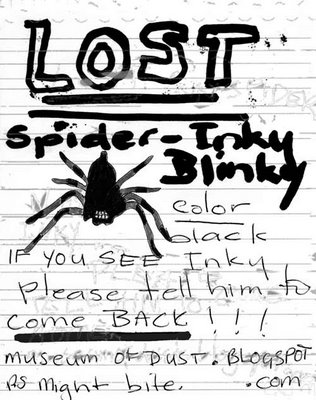 LOST
Spider-Inky
Blinky
color
black
IF YOU SEE Inky
please tell him to
come BACK!!!
museum of Dust. BLOGSPOT
As might bite. .com